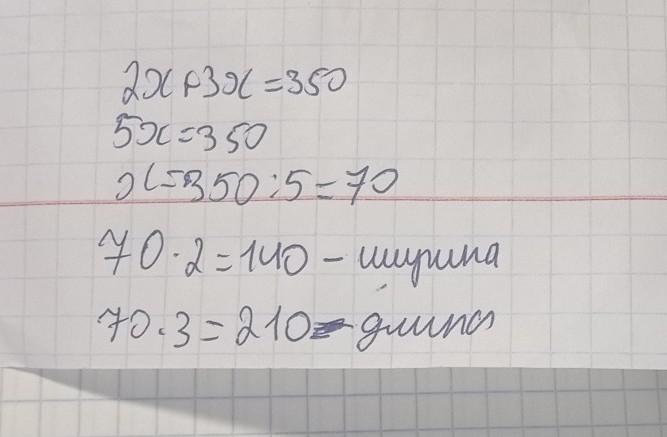 2x+3x=350
5x=350
x=350:5=70
70·2=140-ширина
70·3=210-длина